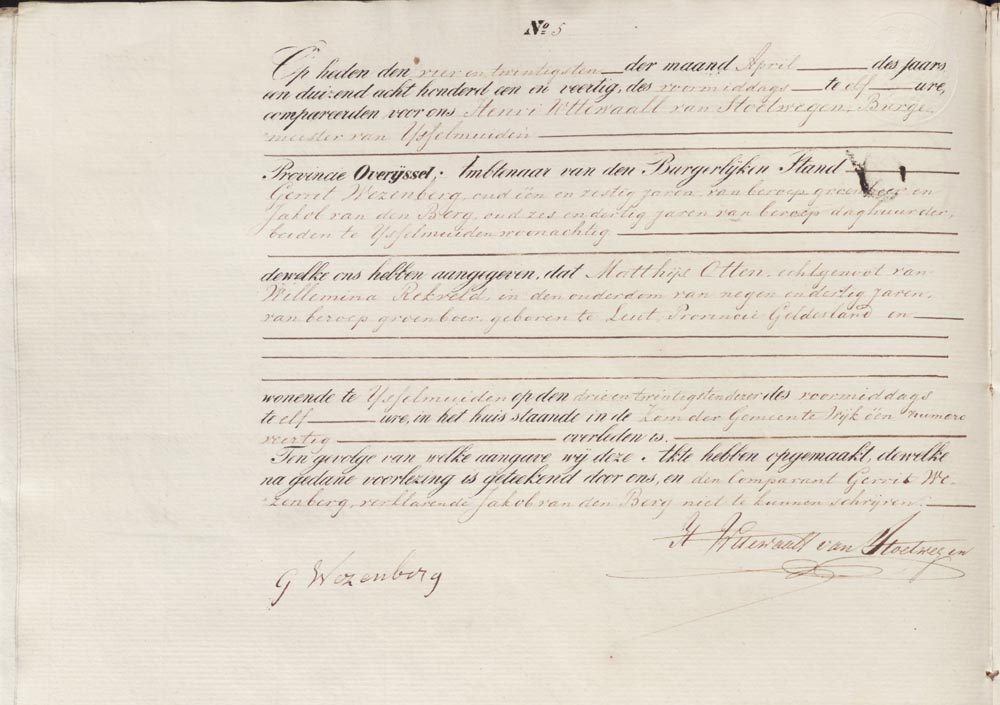 No. 5
Op heden den vier en twintigsten der maand April des jaars
een duizend acht honderd een en veertig, des voormiddags te elf ure,
compareerden voor ons Henri Wttewaall van Stoetwegen, Burge-
meester van Ysselmuiden
Provincie Overijssel; Ambtenaar van den Burgerlijken Stand
Gerrit Wezenberg, oud één en zestig jaren, van beroep groenboer en
Jakob van den Berg, oud zes en dertig jaren van beroep daghuurder,
beiden te Ysselmuiden woonachtig
dewelke ons hebben aangegeven, dat Matthijs Otten, echtgenoot van
Willemina Rekveld, in den ouderdom van negen en dertig jaren,
van beroep groenboer, geboren te Leut, Provincie Gelderland en
wonende te Ysselmuiden op den drie en twintigsten dezer des voormiddags
te elf ure, in het huis staande in de Kom der Gemeente Wijk één numero
veertig overleden is.
Ten gevolge van welke aangave wij deze Akte hebben opgemaakt, dewelke
na gedane voorlezing is geteekend door ons, en den Comparant Gerrit We-
zenberg, verklarende Jakob van den Berg niet te kunnen schrijven.
H Wttewaall van Stoetwegen
G Wezenberg